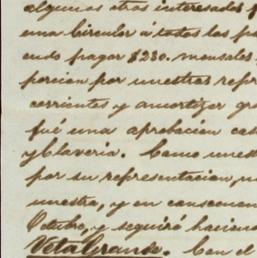 algunos otros interesados
una Circular á todos los
endo pagar $230. mensales
porcion por nuestras repr
corrientes y amortizar gra
fué una aprobacion cas
y Claveria. Como nuest
por su representacion,
nuestra, y en consecuen
Octubre, y seguirá hacien
Veta Grande. Con el